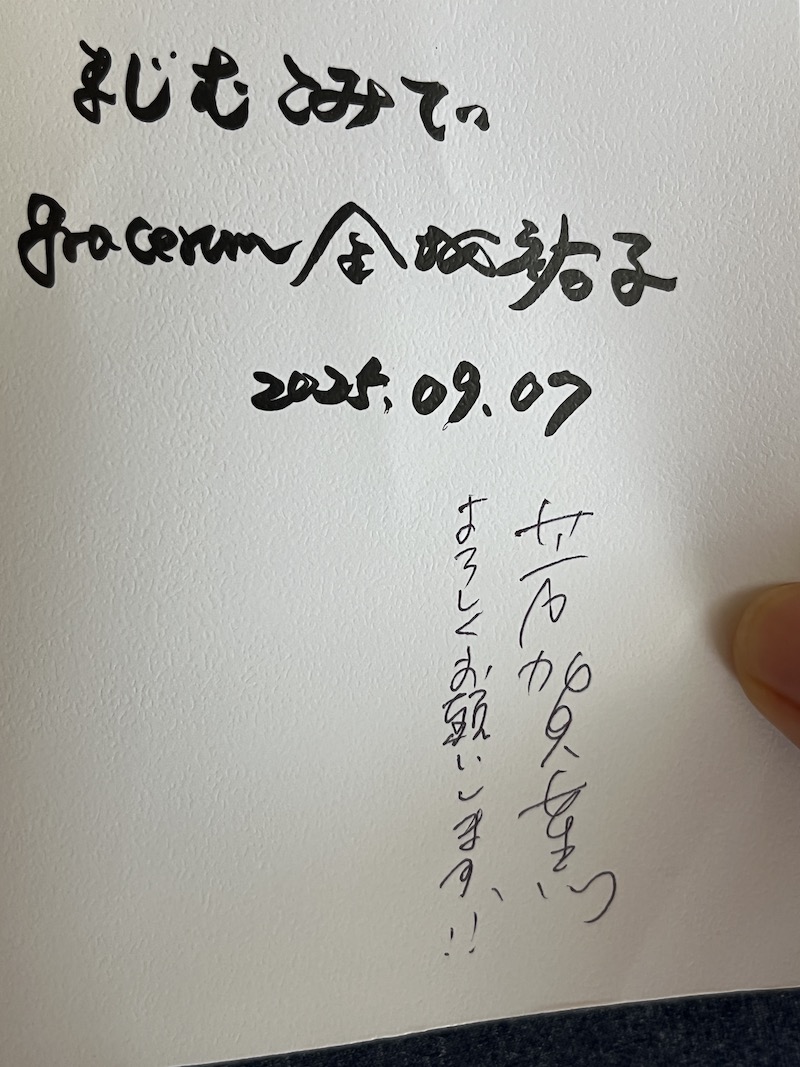 まじむ こみてぃ
gracerum 金城祐子
2025.09.07
芳賀薫
よろしくお願いします!!